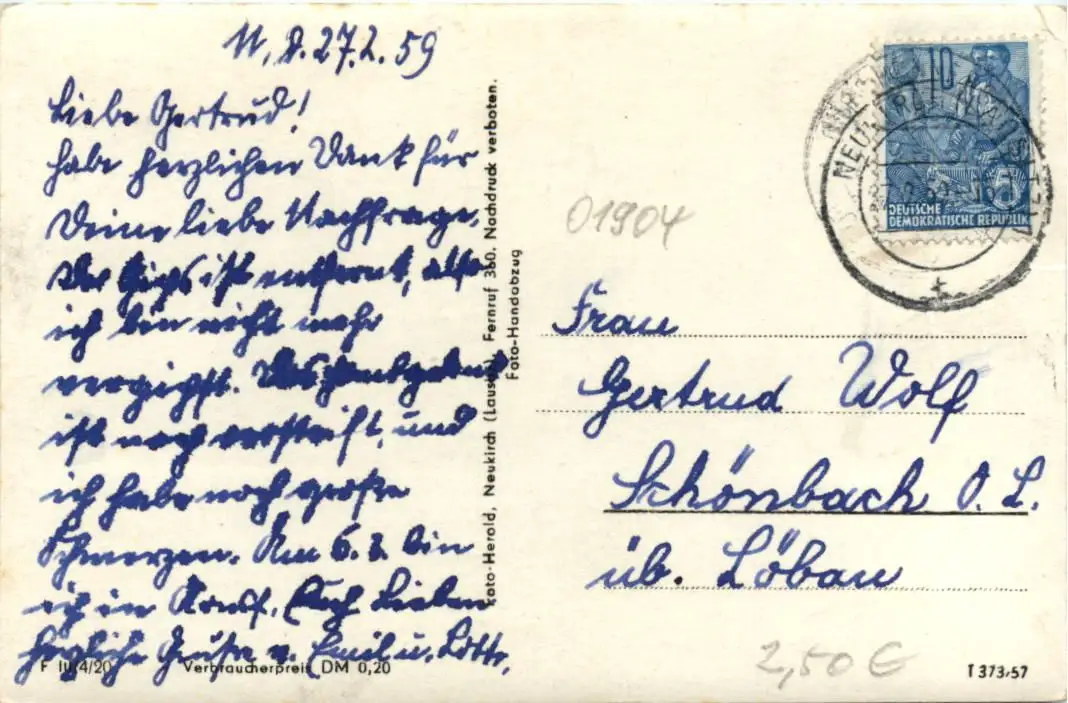 N, d. 27.2.59
Liebe Gertrud!
habe herzlichen Dank für
Deine liebe Nachfrage.
Der Gips ist entfernt, also
ich bin nicht mehr
vergipst. Das Handgelenk
ist noch versteift, und
ich habe noch große
Schmerzen. Am 6. 3. bin
ich in Euch Lieben
herzliche Grüße v. Emil u. Lotte,
Foto-Herold, Neukirch (Lausitz), Fernruf 360. Nachdruck verboten.
Foto-Handabzug
01904
10
5
DEUTSCHE
DEMOKRATISCHE REPUBLIK
NEUKIRCH (LAUSITZ)
Frau
Gertrud Wolf
Schönbach O. L.
üb. Löbau
2,50 €
F III/4/20 Verbraucherpreis DM 0,20
T 373/57